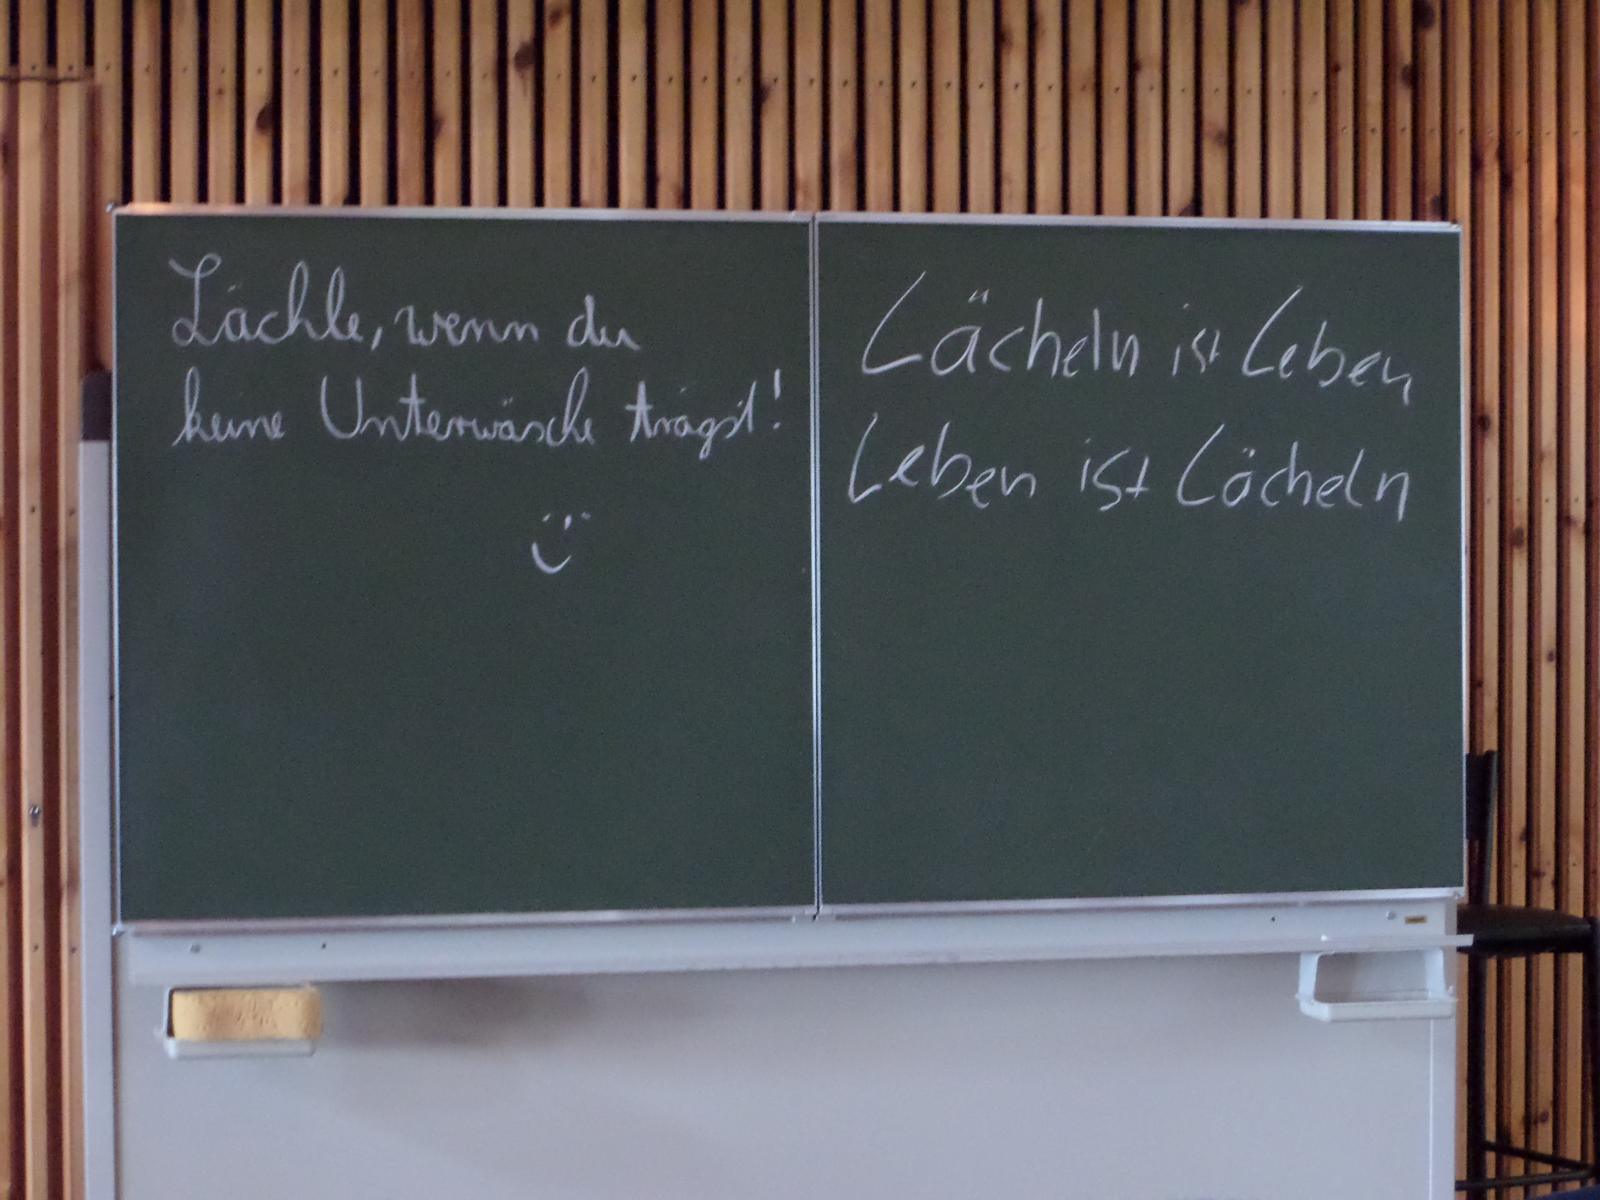 Lächle, wenn du
keine Unterwäsche trägst!
Lächeln ist Leben
Leben ist Lächeln